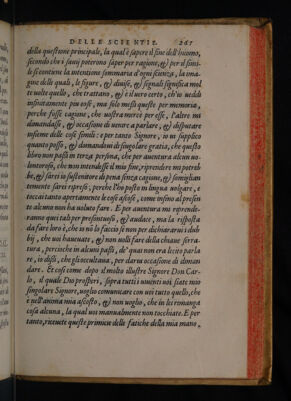 DELLE SCIENTIE. 267
della questione principale, la qual è sapere il fine dell'huomo,
secondo che i sauij poterono saper per ragione, & per il simi-
le si contiene la intentione sommaria d'ogni scienza, la ima-
gine delle quali, le figure, & diuise, & segnali significa nel
te uolte quello, che trattano, & è il uero certo, ch'io ueddi
infinitamente piu cose, ma solo messi queste per memoria,
perche fusse cagione, che uostra merce per esse, l'altre mi
dimandasse, & occasione di uenire a parlare, & disputare
insieme delle cose simili: e per tanto Signore, io ui supplico
quanto posso, & domandoui di singulare gratia, che questo
libro non passi in terza persona, che per auentura alcun ma-
liuolente, che non intendesse il mio fine, riprendere mi potreb-
be, & sarei io sustenitore di pena sinza cagione, & somiglian-
temente sarei ripreso, perche l'ho posto in lingua uolgare, e
toccai tanto apertamente le cose ascose, come insino al presen-
te alcuno non ha uoluto fare. E per auentura mi riprende-
ranno qui tali per presuntuoso, & audace, ma la risposta
da fare loro è, che io nõ lo faccio se non per dichiararui i dub-
bij, che uoi haueuate, & non uolli fare della chiaue serra-
tura, percioche in alcuni passi, de' quai non era lecito parla
re, io dissi, che gli occultaua, per darui occasione di diman
dare. Et cosi come dopo il molto illustre Signore Don Car-
lo, il quale Dio prosperi, sopra tutti i uiuenti uoi siate mio
singolare Signore, uoglio comunicare con uoi tutto quello, che
è nell'anima mia ascosto, & non uoglio, che in lei rimanga
cosa alcuna, la qual uoi manualmente non tocchiate. E per
tanto, riceuete queste primicie delle fatiche della mia mano,